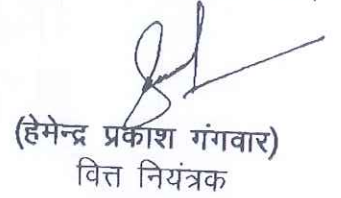 (हेमेन्द्र प्रकाश गंगवार)
वित्त नियंत्रक